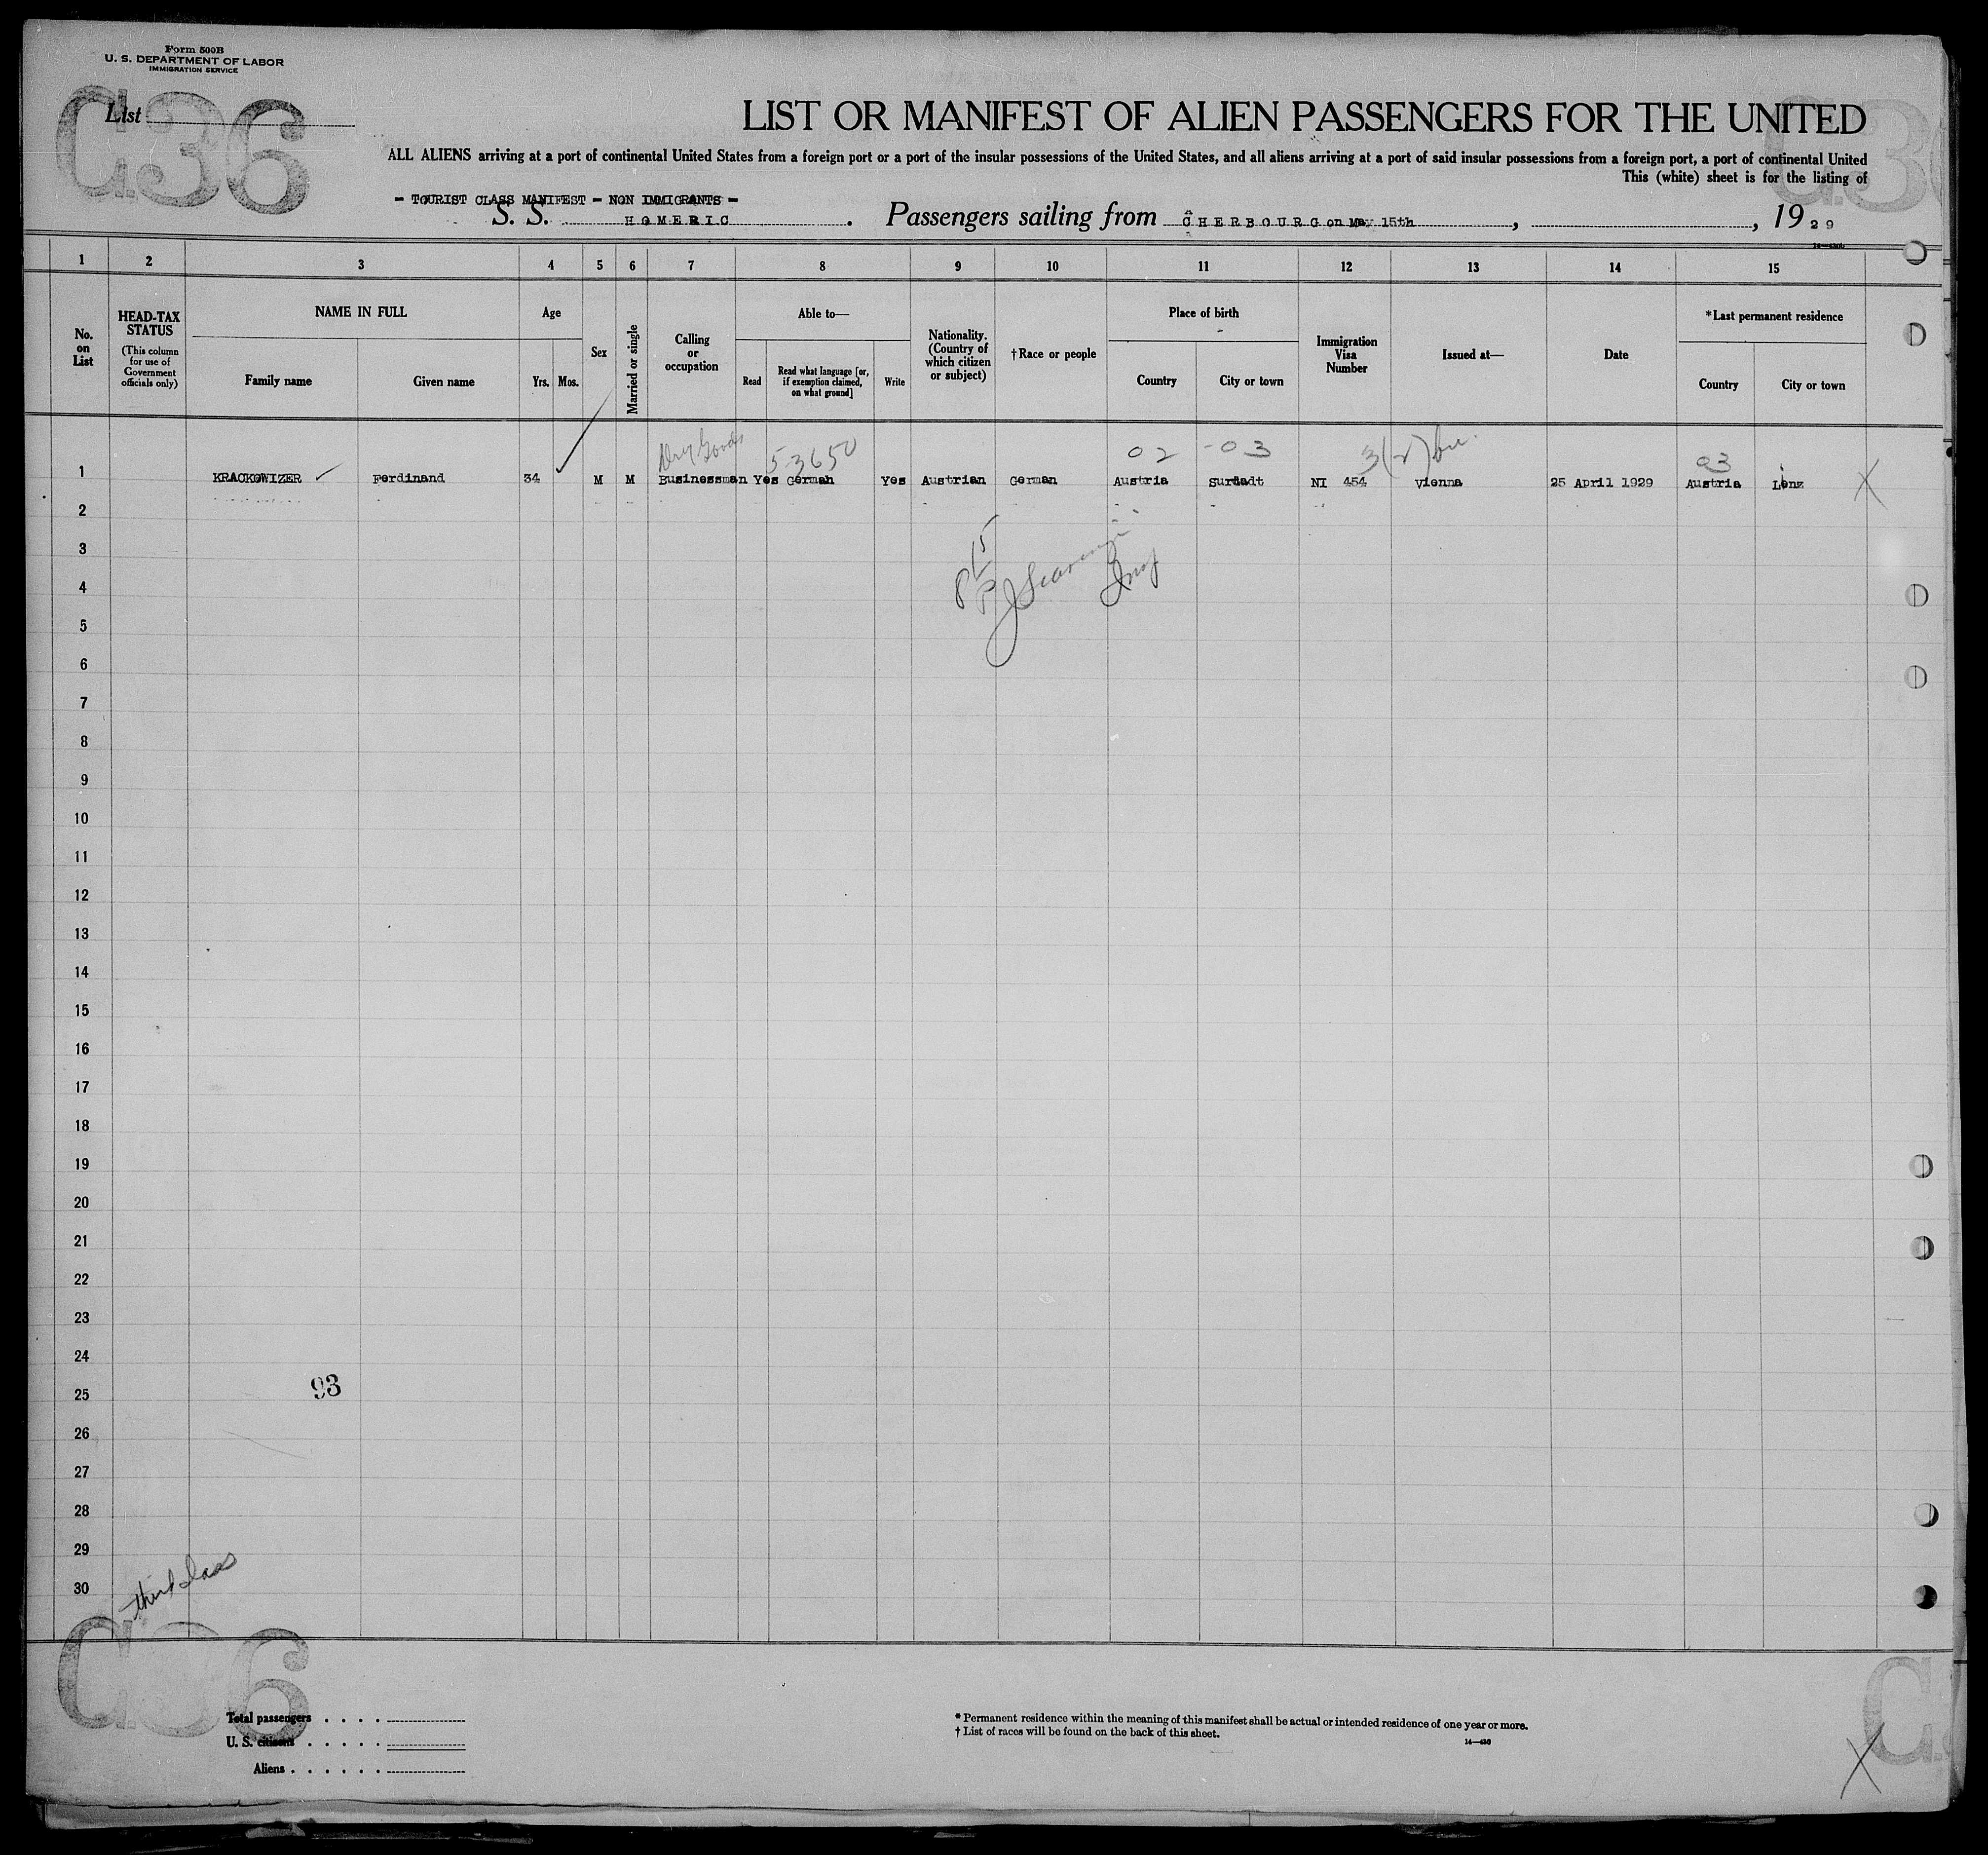 Form 500B
U. S. DEPARTMENT OF LABOR
IMMIGRATION SERVICE
G36
List
LIST OR MANIFEST OF ALIEN PASSENGERS FOR THE UNITED
ALL ALIENS arriving at a port of continental United States from a foreign port or a port of the insular possessions of the United States, and all aliens arriving at a port of said insular possessions from a foreign port, a port of continental United
This (white) sheet is for the listing of
- TOURIST CLASS MANIFEST - NON IMMIGRANTS -
S. S. HOMERIC. Passengers sailing from CHERBOURG on May 15th, , 1929
1 2 3 4 5 6 7 8 9 10 11 12 13 14 15
No. on List
HEAD-TAX STATUS (This column for use of Government officials only)
NAME IN FULL
Family name Given name
Age
Yrs. Mos.
Sex
Married or single
Calling or occupation
Able to—
Read
Read what language [or, if exemption claimed, on what ground]
Write
Nationality. (Country of which citizen or subject)
†Race or people
Place of birth
Country City or town
Immigration Visa Number
Issued at—
Date
*Last permanent residence
Country City or town
Dry Goods 5-3650 02 -03 03
1 KRACKOWIZER Ferdinand 34 M M Businessman Yes German Yes Austrian German Austria NI 454 Vienna 25 April 1929 Austria Linz X
2
3
4
5
6
7
8
9
10
11
12
13
14
15
16
17
18
19
20
21
22
23
24
93
25
26
27
28
29
30
third class
G36
Total passengers . . . .
U. S. citizens . . . . .
Aliens . . . . . .
* Permanent residence within the meaning of this manifest shall be actual or intended residence of one year or more.
† List of races will be found on the back of this sheet.
14—430
X